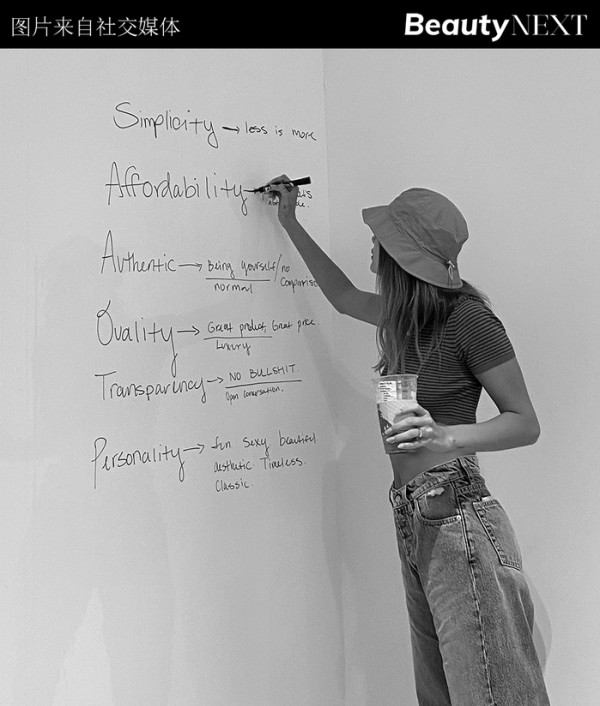 图片来自社交媒体
BeautyNEXT
Simplicity → less is more
Affordability →
Authentic → Being yourself/no
normal compromise
Quality → Great product, Great price.
Luxury
Transparency → NO BULLSHIT.
Open conversation.
Personality → fun sexy beautiful.
aesthetic. Timeless.
Classic.